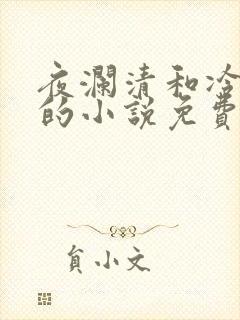 夜澜清和冷
的小说免费
貟小文